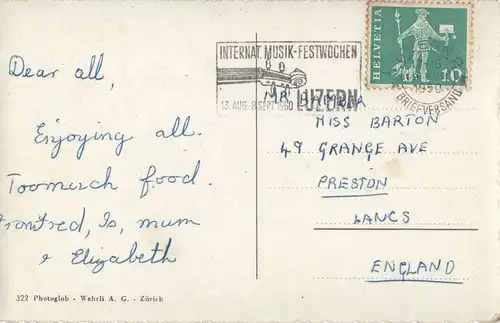 INTERNAT. MUSIK-FESTWOCHEN
LUZERN
13. AUG. 8. SEPT. 1960
HELVETIA
10
BRIEFVERSAND
Dear all,
Enjoying all.
Toomuch food.
Is, mum
& Elizabeth
MR
MISS BARTON
49 GRANGE AVE
PRESTON
LANCS
ENGLAND
322 Photoglob - Wehrli A. G. - Zürich